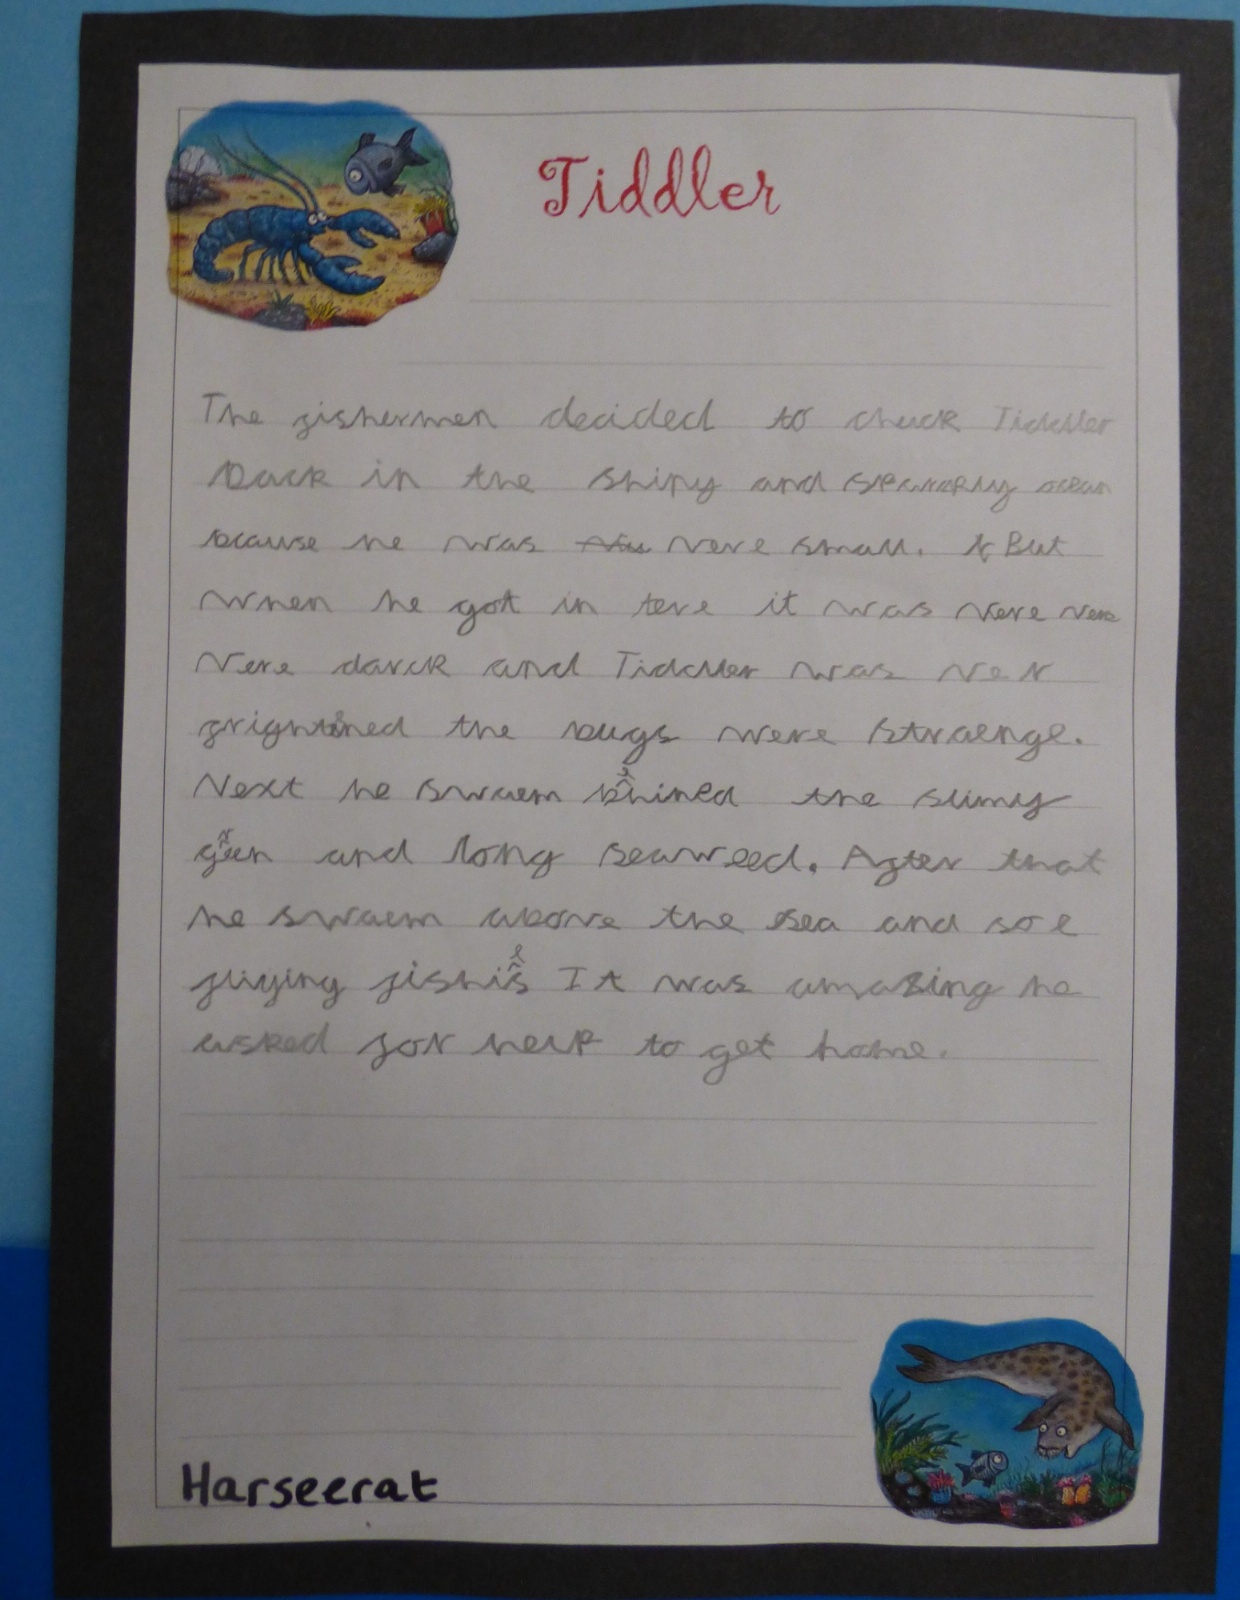 Tiddler
The fishermen decided to chuck Tiddler
back in the shiny and ocean
bcause he was vere small. But
when he got in tere it was vere vere
vere darck and Tiddler was ver
frightined the bugs were straenge.
Next he swaem behined the slimy
green and long seaweed. After that
he swaem above the sea and soe
fliying fishes It was amazing he
asked for help to get home.
Harseerat